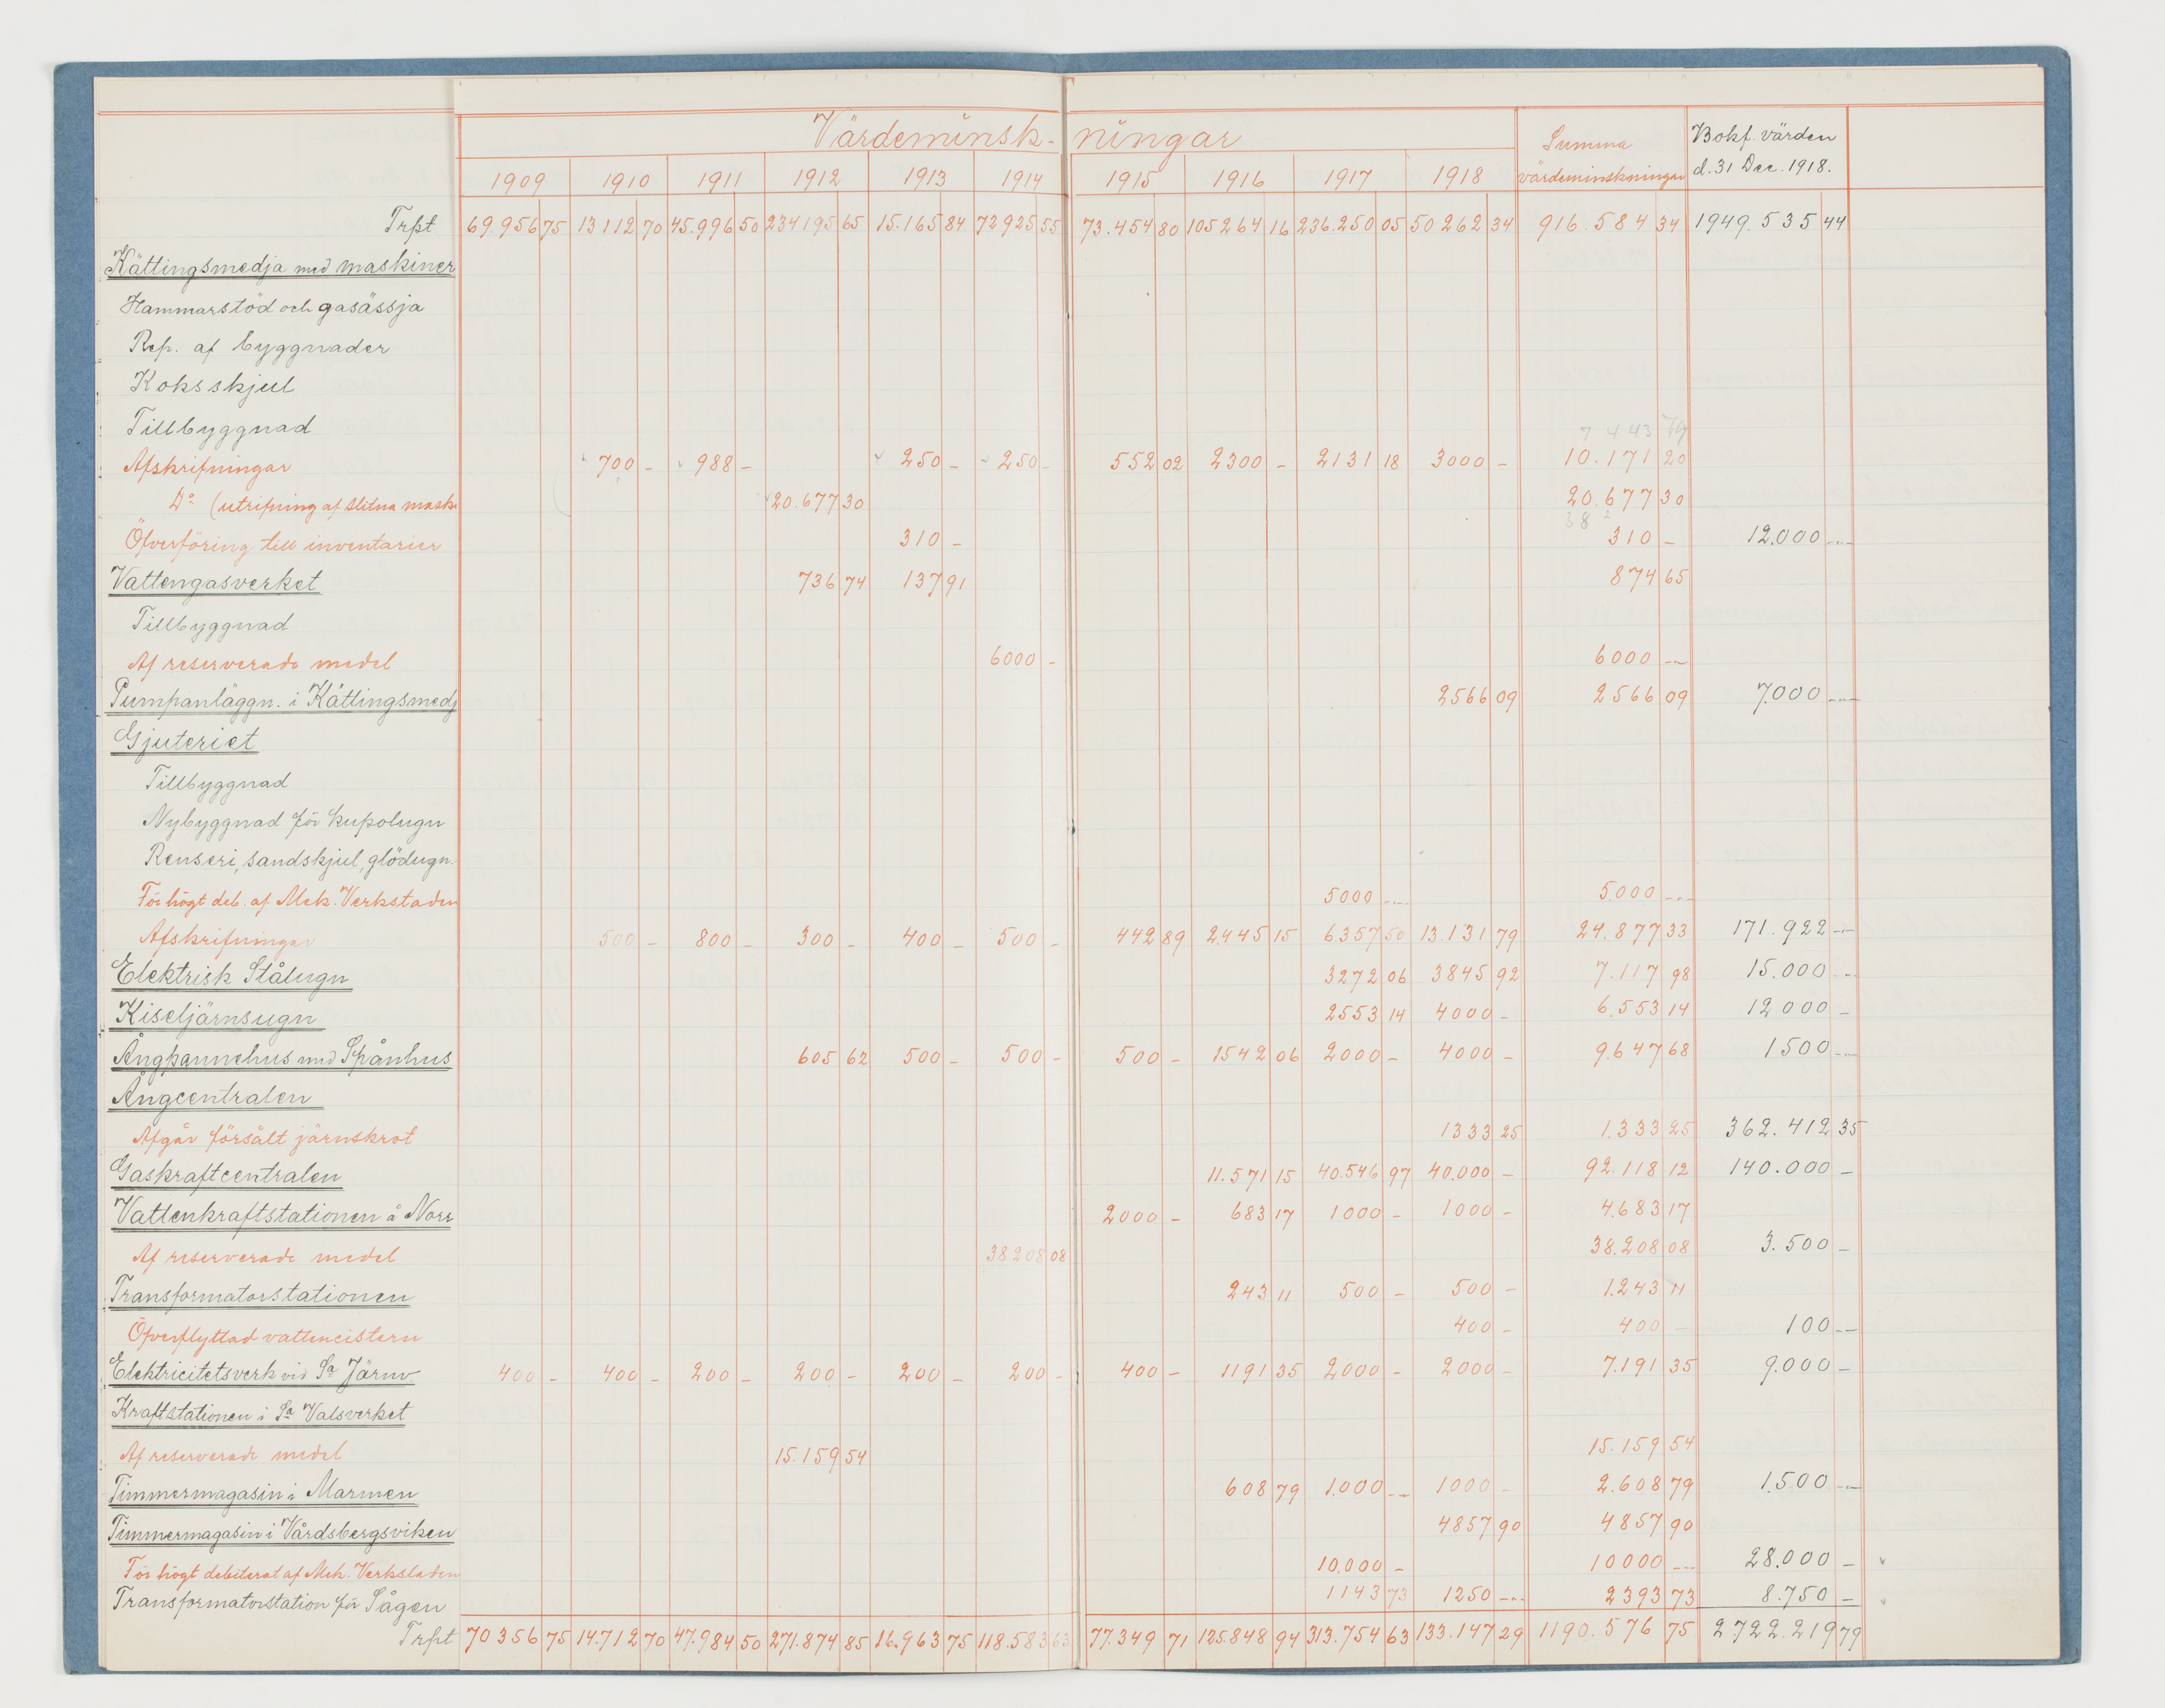 Värdeminsk- ningar
Summa värdeminskningar
Bokf. värden d. 31 Dec. 1918.
1909 1910 1911 1912 1913 1914 1915 1916 1917 1918
Trpt 69.956 75 13112 70 45.996 50 234195 65 15.165 84 72925 55 73.454 80 105264 16 236.250 05 50262 34 916.584 34 1949.535 44
Kättingsmedja med maskiner
Hammarstöd och gasässja
Rep. af byggnader
Koksskjul
Tillbyggnad 7443 79
Afskrifningar 700 - 988 - 250 - 250 - 552 02 2300 - 2131 18 3000 - 10.171 20
Do (utrifning af slitna mask 20.677 30 20.677 30
38
Öfverföring till inventarier 310 - 310 - 12.000 -
Vattengasverket 736 74 137 91 874 65
Tillbyggnad
Af reserverade medel 6000 - 6000 -
Pumpanläggn. i Kättingsmedj 2566 09 2566 09 7.000 -
Gjuteriet
Tillbyggnad
Nybyggnad för kupolugn
Renseri, sandskjul, glödugn.
För högt deb. af Mek. Verkstaden 5000 - 5000 -
Afskrifningar 500 - 800 - 300 - 400 - 500 - 442 89 2445 15 6357 50 13.131 79 24.877 33 171.922 -
Elektrisk Stålugn 3272 06 3845 92 7.117 98 15.000 -
Kiseljärnsugn 2553 14 4000 - 6.553 14 12000 -
Ångpannehus med Spånhus 605 62 500 - 500 - 500 - 1542 06 2000 - 4000 - 9.647 68 1500 -
Ångcentralen
Afgår försålt järnskrot 1333 25 1.333 25 362.412 35
Gaskraftcentralen 11.571 15 40.546 97 40.000 - 92.118 12 140.000 -
Vattenkraftstationen å Norr 2000 - 683 17 1000 - 1000 - 4.683 17
Af reserverade medel 38208 08 38.208 08 3.500 -
Transformatorstationen 243 11 500 - 500 - 1.243 11
Öfverflyttad vattencistern 400 - 400 - 100 -
Elektricitetsverk vid Sa Järnv 400 - 400 - 200 - 200 - 200 - 200 - 400 - 1191 35 2000 - 2000 - 7.191 35 9.000 -
Kraftstationen i Sa Valsverket
Af reserverade medel 15.159 54 15.159 54
Timmermagasin i Marmen 608 79 1.000 - 1000 - 2.608 79 1.500 -
Timmermagasin i Vårdsbergsviken 4857 90 4857 90
För högt debiterat af Mek. Verkstaden 10.000 - 10000 - 28.000 -
Transformatorstation för Sågen 1143 73 1250 - 2393 73 8.750 -
Trpt 70356 75 14.712 70 47.984 50 271.874 85 16.963 75 118.583 63 77.349 71 125.848 94 313.754 63 133.147 29 1190.576 75 2722.219 79